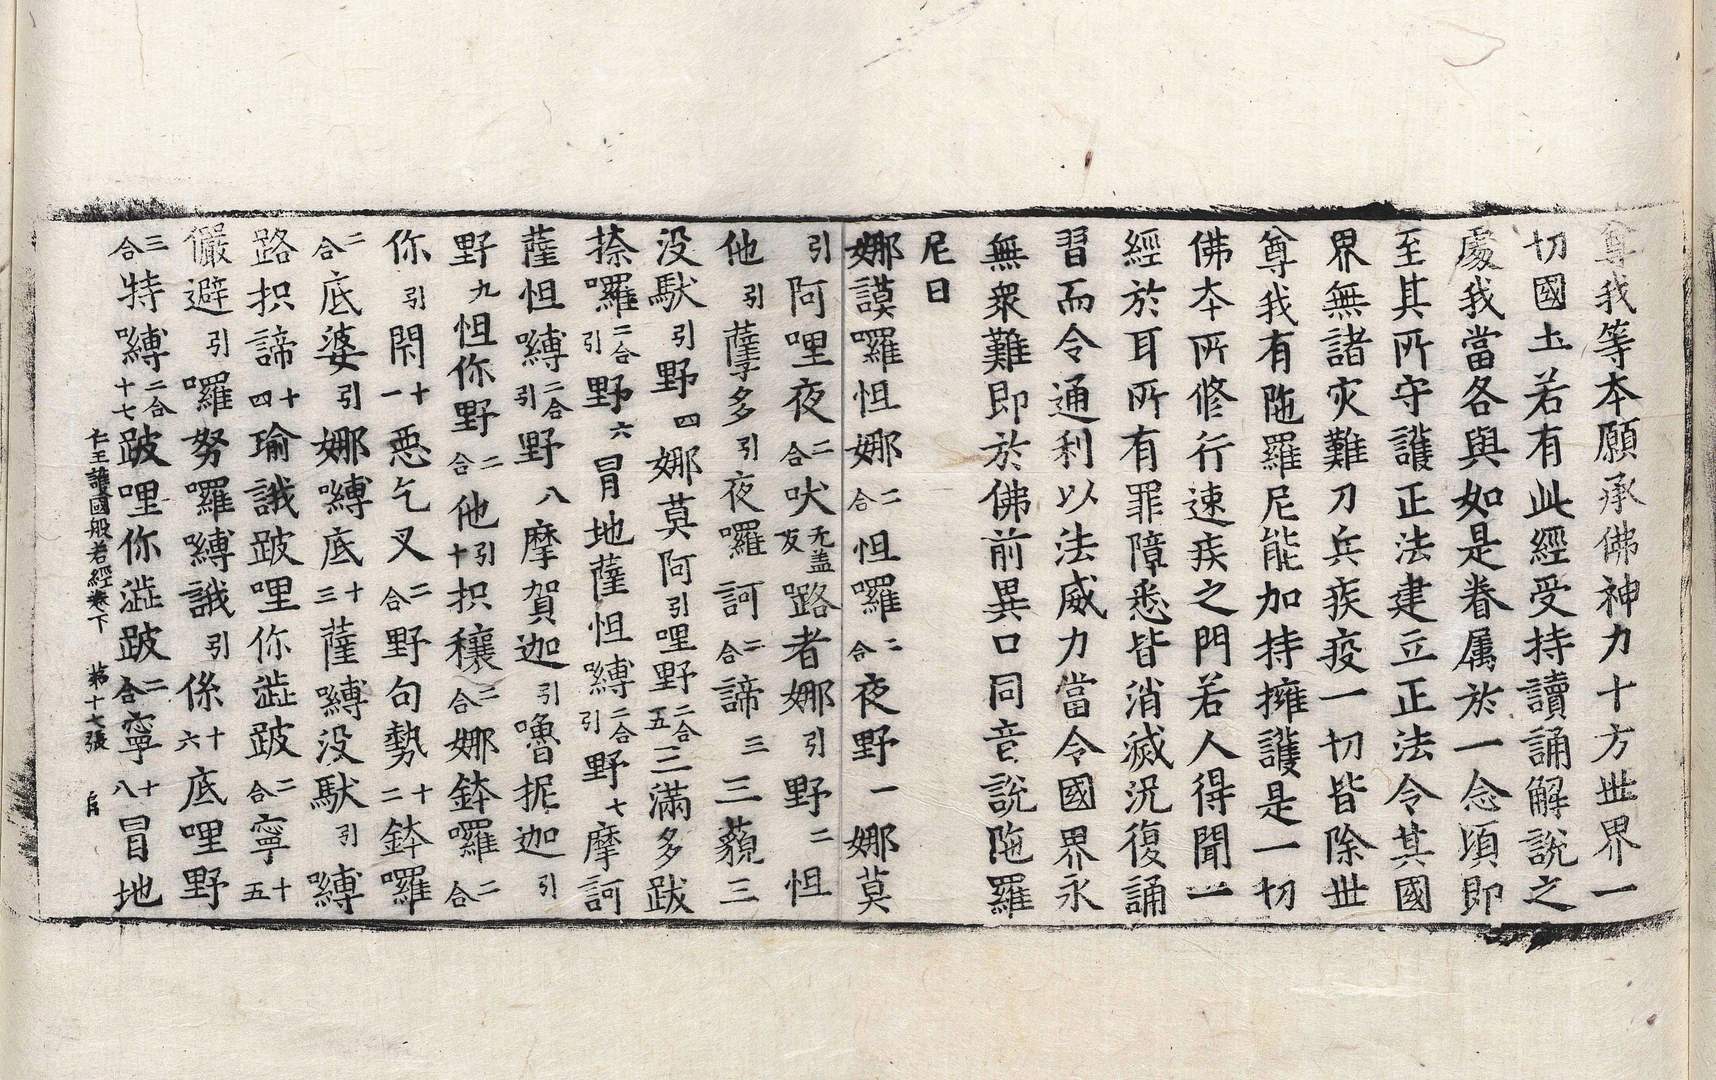 尊我等本願承佛神力十方世界一
切國土若有此經受持讀誦解說之
處我當各與如是眷屬於一念頃即
至其所守護正法建立正法令其國
界無諸灾難刀兵疾疫一切皆除世
尊我有陁羅尼能加持擁護是一切
佛本所修行速疾之門若人得聞一
經於耳所有罪障悉皆消滅況復誦
習而令通利以法威力當令國界永
無衆難即於佛前異口同音說陁羅
尼曰
娜謨囉怛娜二合怛囉二合夜野一娜莫
引阿哩夜二合吠无盖反路者娜引野二怛
他引薩多引夜囉訶二合諦三三藐三
沒馱引野四娜莫阿引哩野二合五三滿多跋
捺囉二合引野六冒地薩怛嚩二合引野七摩訶
薩怛嚩二合引野八摩賀迦引嚕抳迦引
野九怛你野二合他引十枳穰二合娜鉢囉二合
你引閇十一惡乞叉二合野句勢十二鉢囉
二合底婆引娜嚩底十三薩嚩沒馱引嚩
路枳諦十四瑜誐跛哩你澁跛二合寧十五
儼避引囉努囉嚩誐引係十六底哩野
三合特嚩二合十七跛哩你澁跛二合寧十八冒地
仁王護國般若經卷下 第十七張